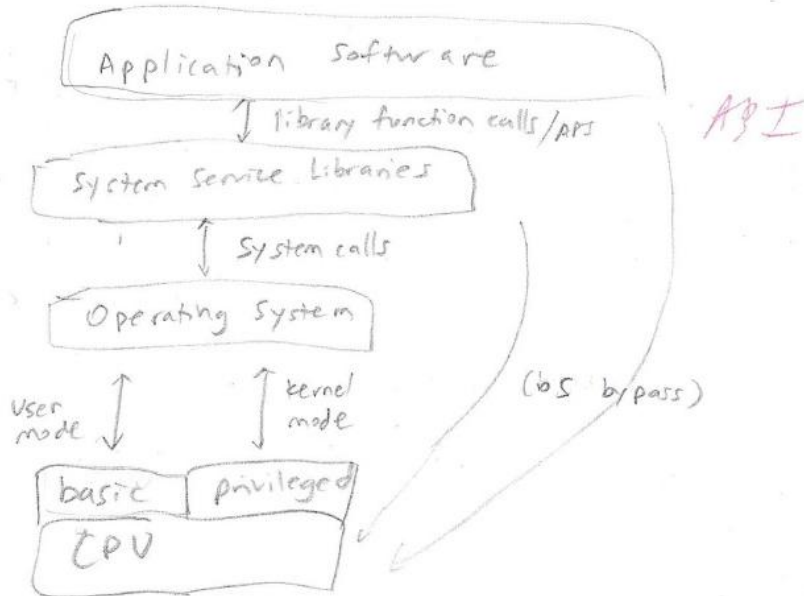 Application Software
library function calls/API
API
System Service Libraries
System calls
Operating System
user mode
kernel mode
(os bypass)
basic
privileged
CPU